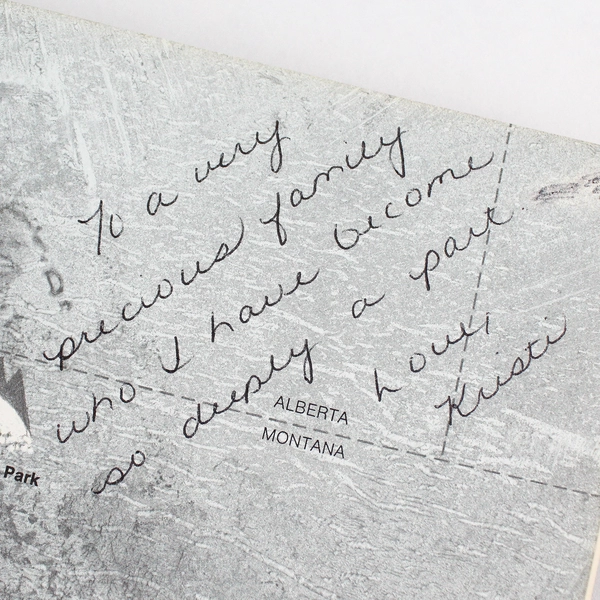 To a very
precious family
who I have become
so deeply a part.
Love,
Kristi
ALBERTA
MONTANA
Park